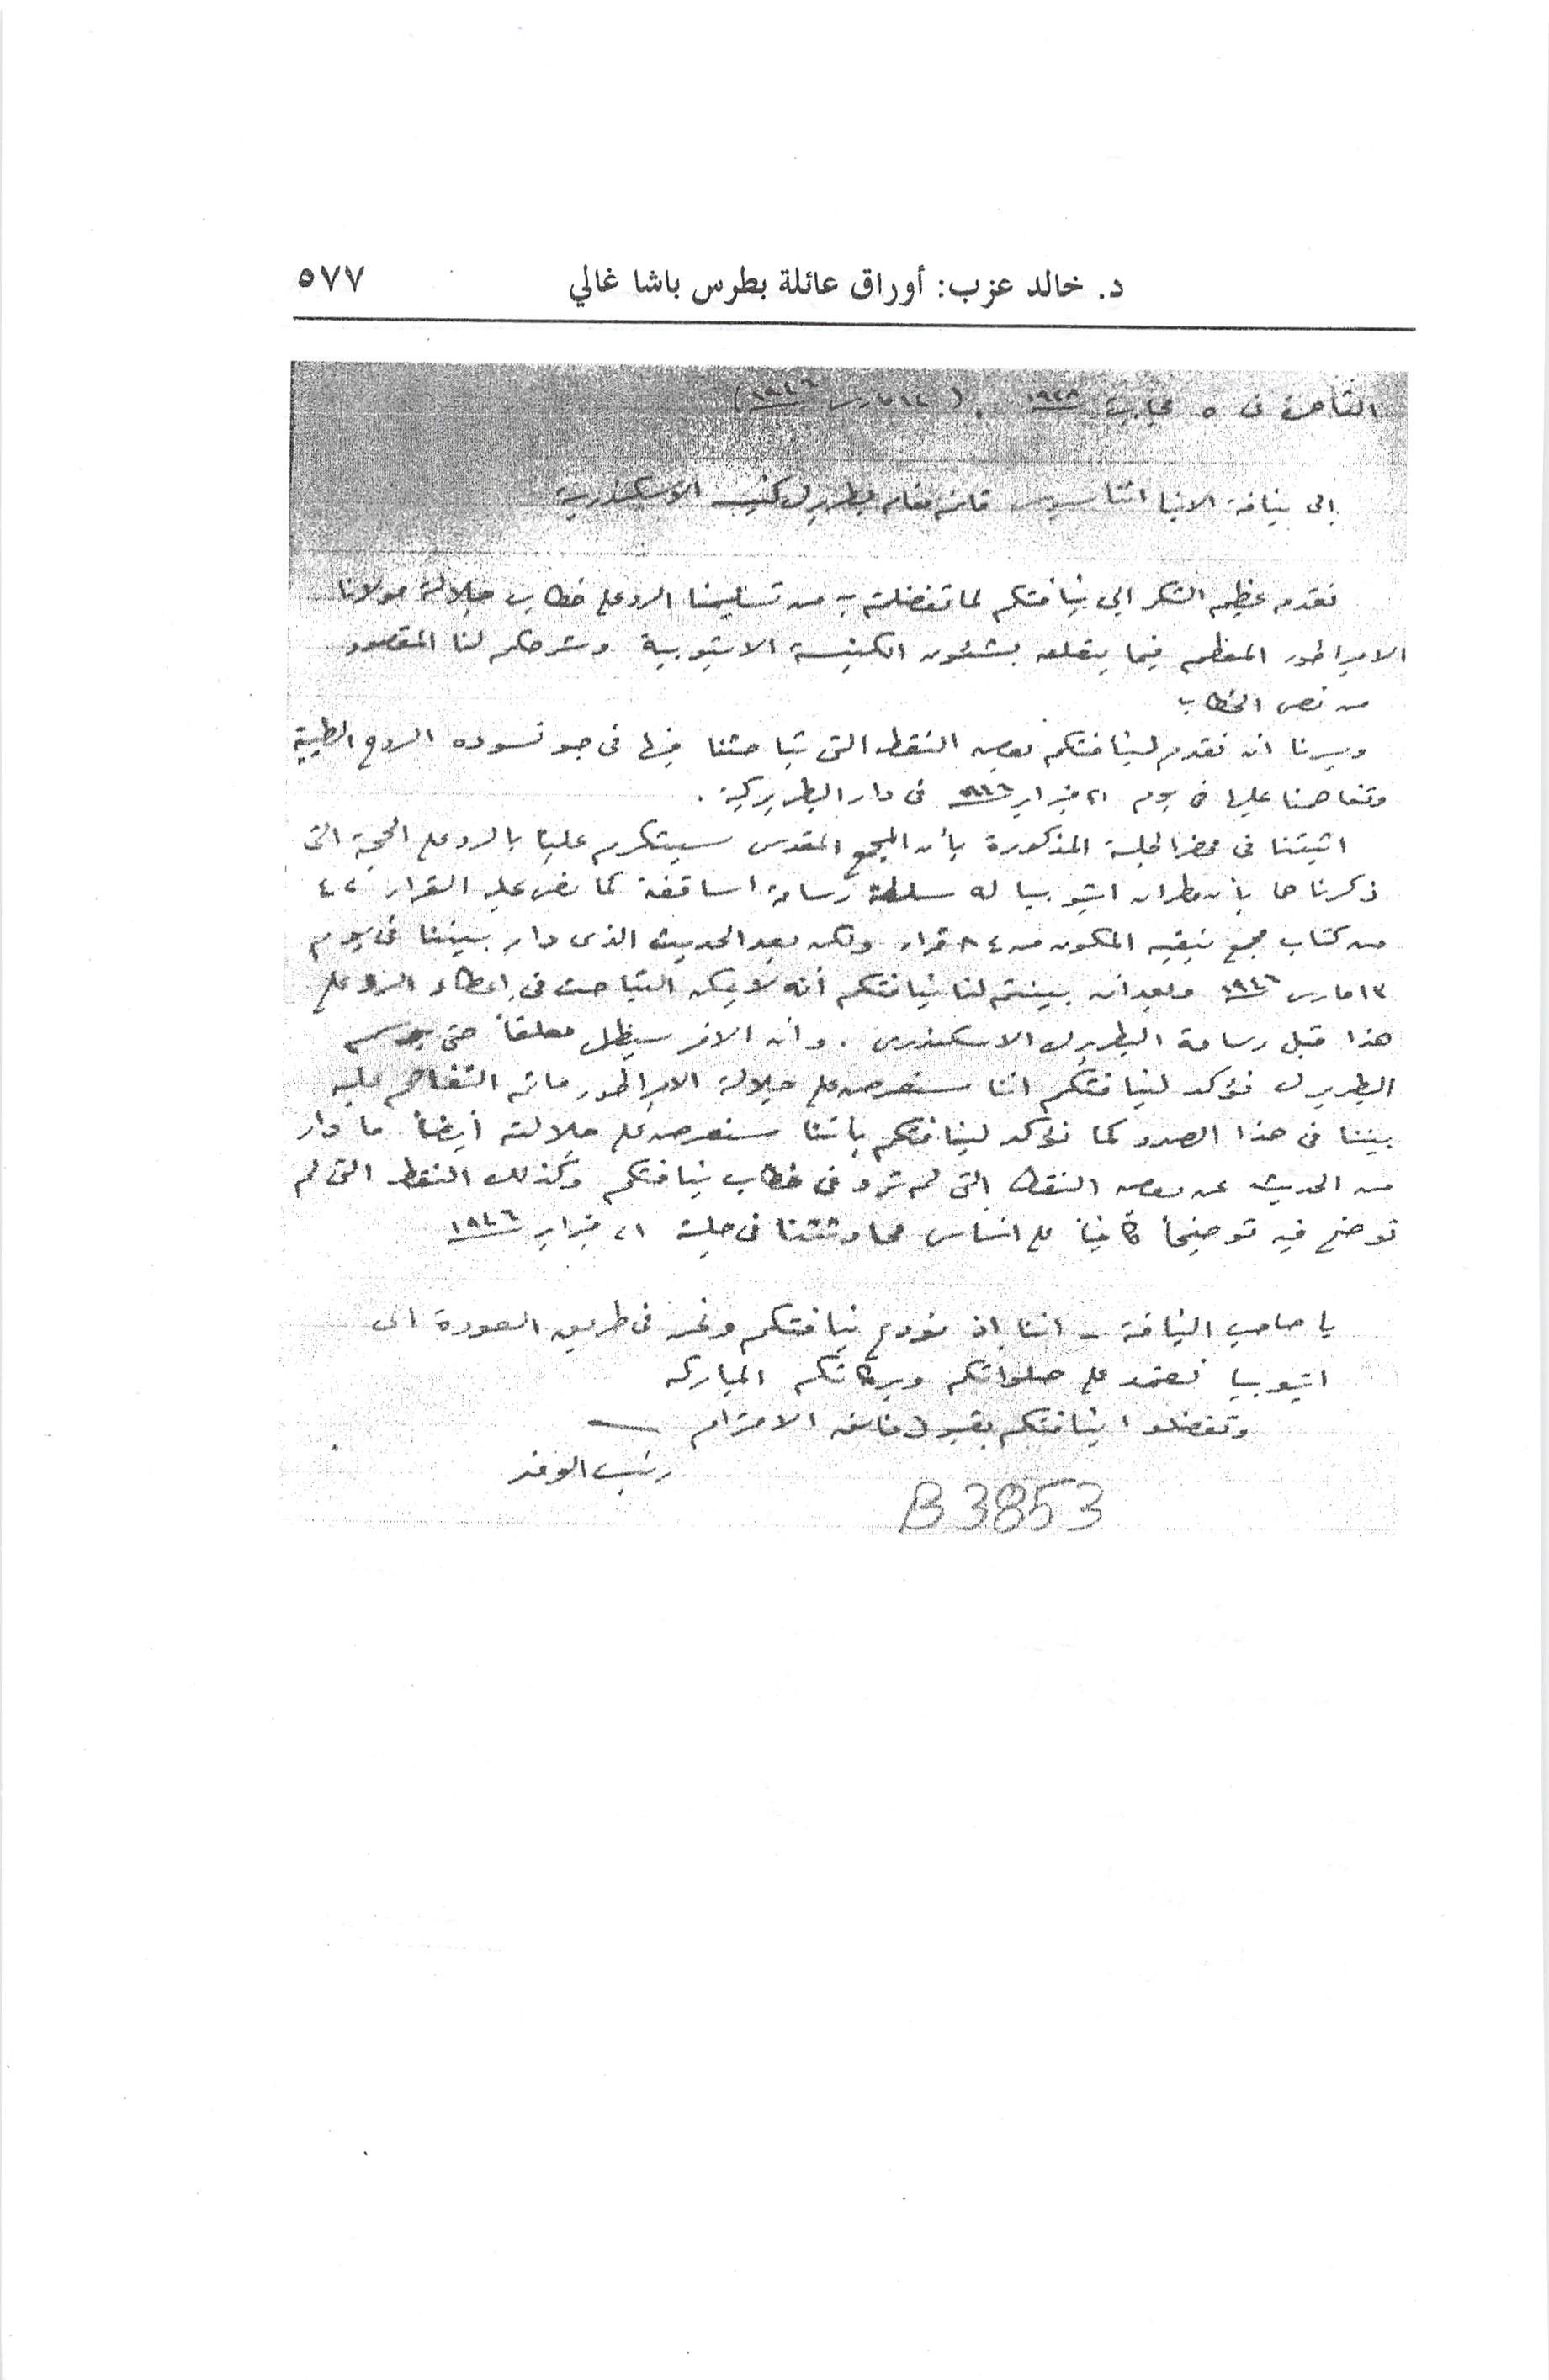 د. خالد عزب: أوراق عائلة بطرس باشا غالي ٥٧٧
القاهرة فى ٥ مجابيت ١٩٣٨ . ( ١٤ مارس ١٩٤٦ )
إلى نيافة الانبا اثناسيوس قائم مقام بطريرك كنيسة الاسكندرية
نقدم عظيم الشكر الى نيافتكم لما تفضلتم به من تسليمنا الرد على خطاب جلالة مولانا
الامبراطور المعظم فيما يتعلق بشئون الكنيسة الاتيوبية وشرحكم لنا المقصود
من نص الخطاب
ويسرنا ان نقدم لنيافتكم بعض النقط التى تباحثنا فيها فى جو تسوده الروح الطيبة
وتفاهمنا عليها فى يوم ٢١ فبراير ١٩٤٦ فى دار البطريركية .
اثبتنا فى محضر الجلسة المذكورة بأن المجمع المقدس سيتكرم علينا بالرد على الحجة التى
ذكرناها بأن مطران اتيوبيا له سلطة رسامة اساقفة كما نص عليه القرار ٤٢
من كتاب مجمع نيقيه المكون من ٨٤ قرار ولكن بعد الحديث الذى دار بيننا فى يوم
١٣ مارس ١٩٤٦ وبعد ان بينتم لنا نيافتكم أنه لا يمكن التباحث فى إعطاء الرد على
هذا قبل رسامة البطريرك الاسكندرى . وان الامر سيظل معلقاً حتى يرسم
البطريرك نؤكد لنيافتكم اننا سنعرض على جلالة الامبراطور ماتم التفاهم عليه
بيننا فى هذا الصدد كما نؤكد لنيافتكم بأننا سنعرض على جلالته أيضاً ما دار
من الحديث عن بعض النقط التى لم ترد فى خطاب نيافتكم وكذلك النقط التى لم
توضح فيه توضيحاً كافياً على اساس محادثتنا فى جلسة ٢١ فبراير ١٩٤٦
يا صاحب النيافة - اننا إذ نودع نيافتكم ونحن فى طريق العودة الى
اتيوبيا نعتمد على صلواتكم وبركاتكم المباركه
وتفضلوا نيافتكم بقبول فائق الاحترام
رئيس الوفد
B 3853